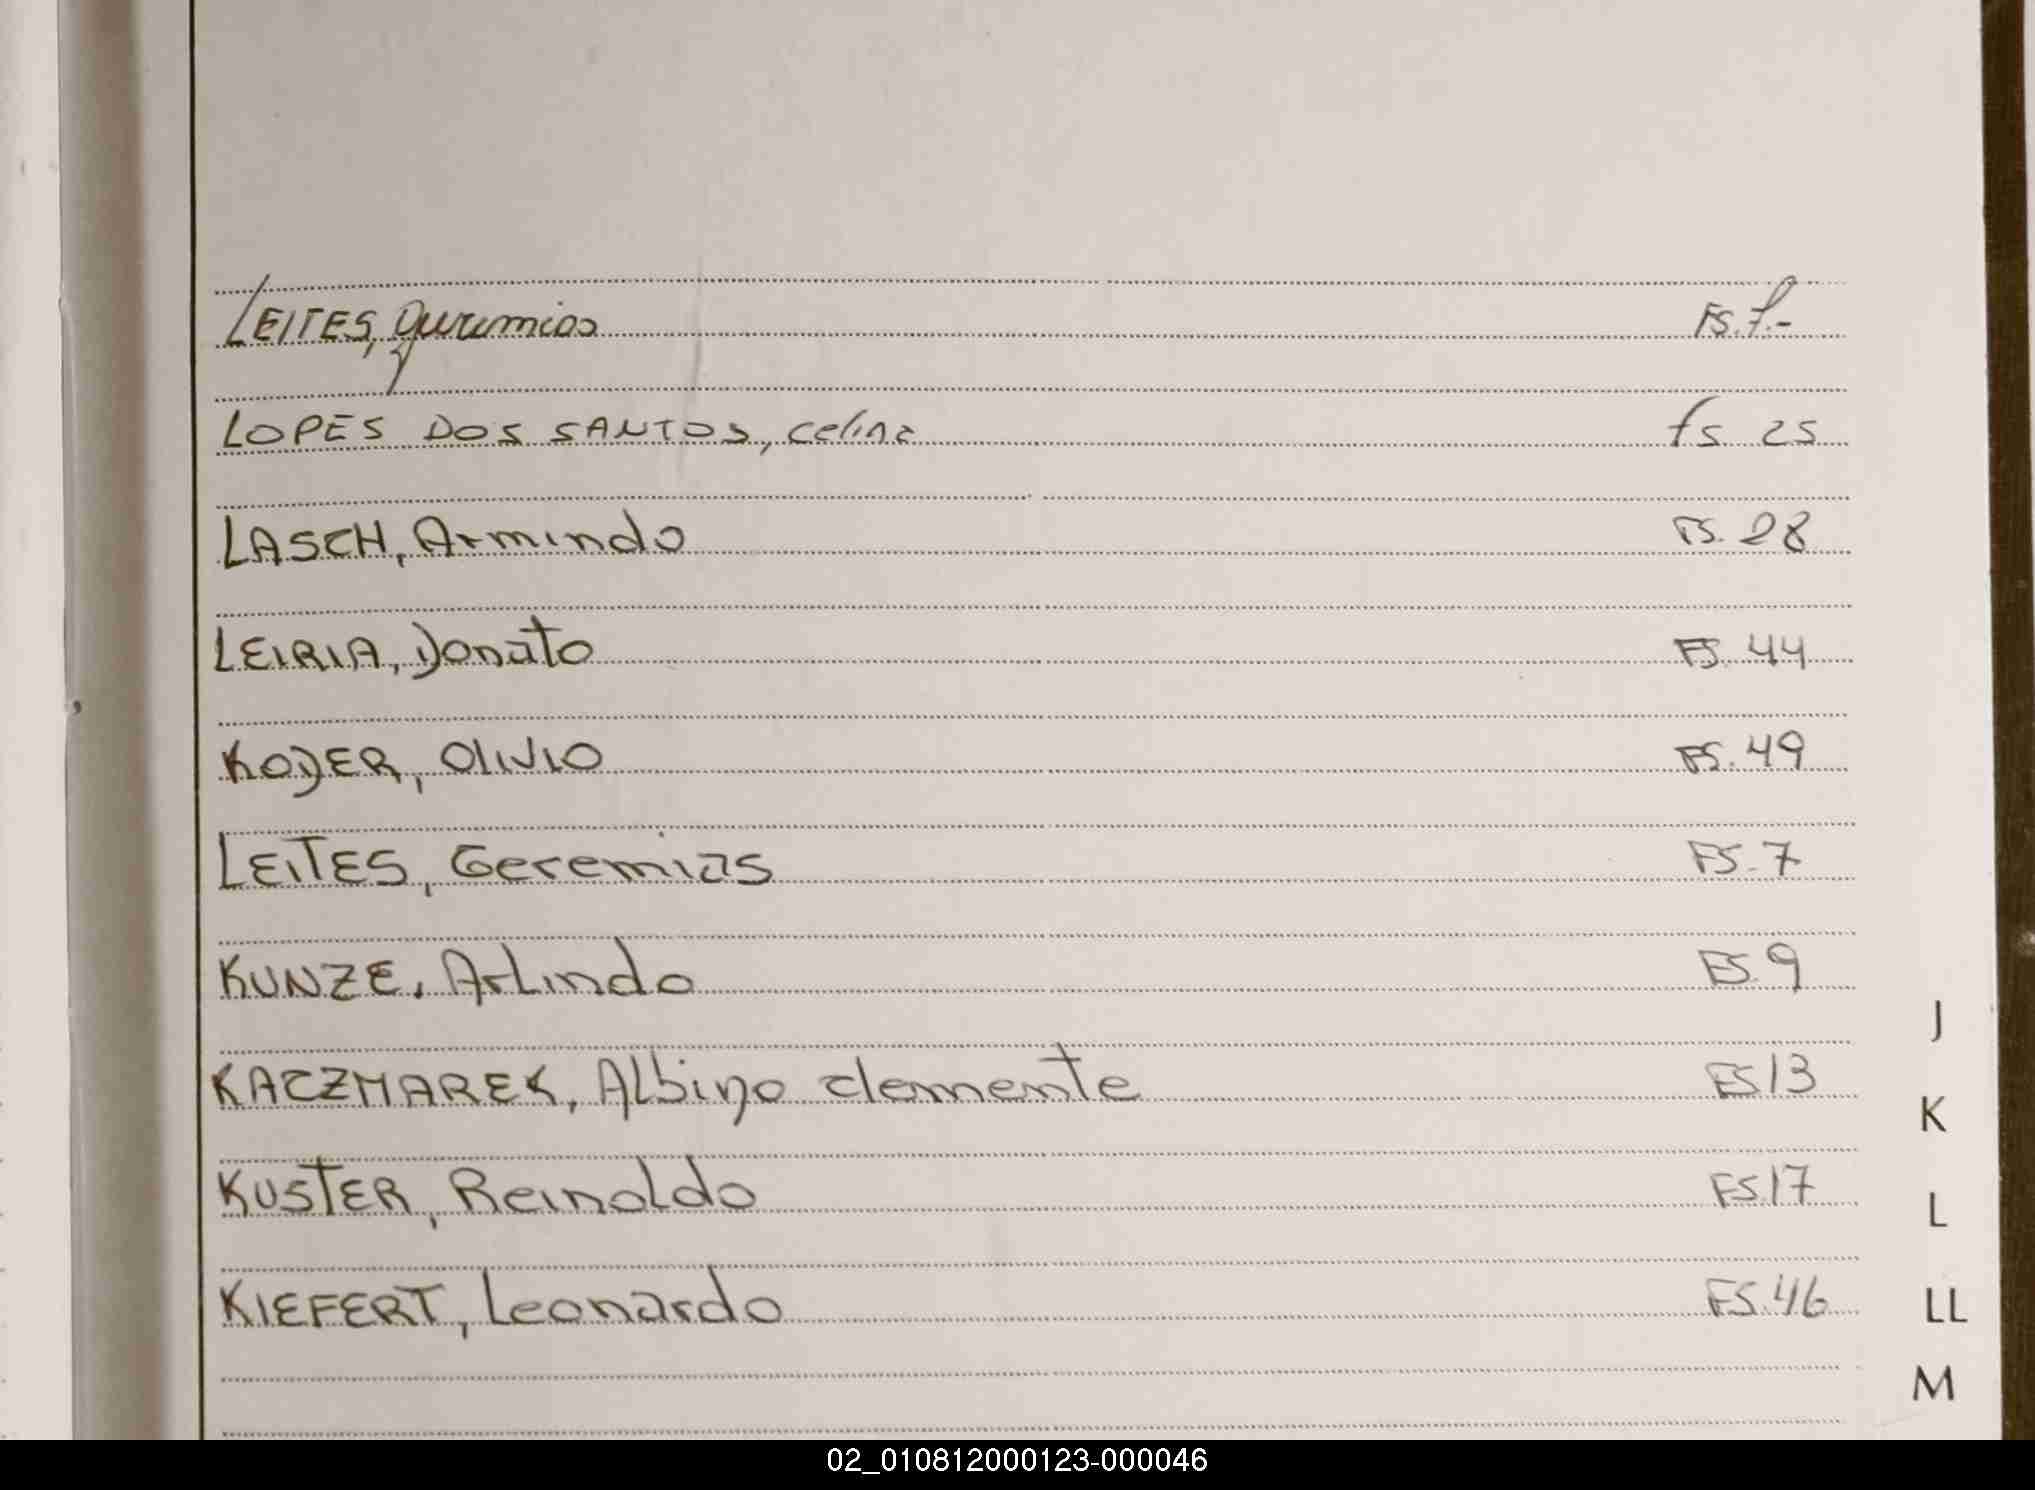 LEITES, Gueremias FS. 7.-
LOPES DOS SANTOS, Celina fs 25
LASCH, Armindo FS. 28
LEIRIA, Donato FS. 44
KODER, OLIVIO FS. 49
LEITES, Geremias FS. 7
KUNZE, Arlindo FS. 9
J
KACZMAREK, Albino clemente FS 13
K
KUSTER, Reinaldo FS. 17
L
KIEFERT, Leonardo FS. 46
LL
M
02_010812000123-000046